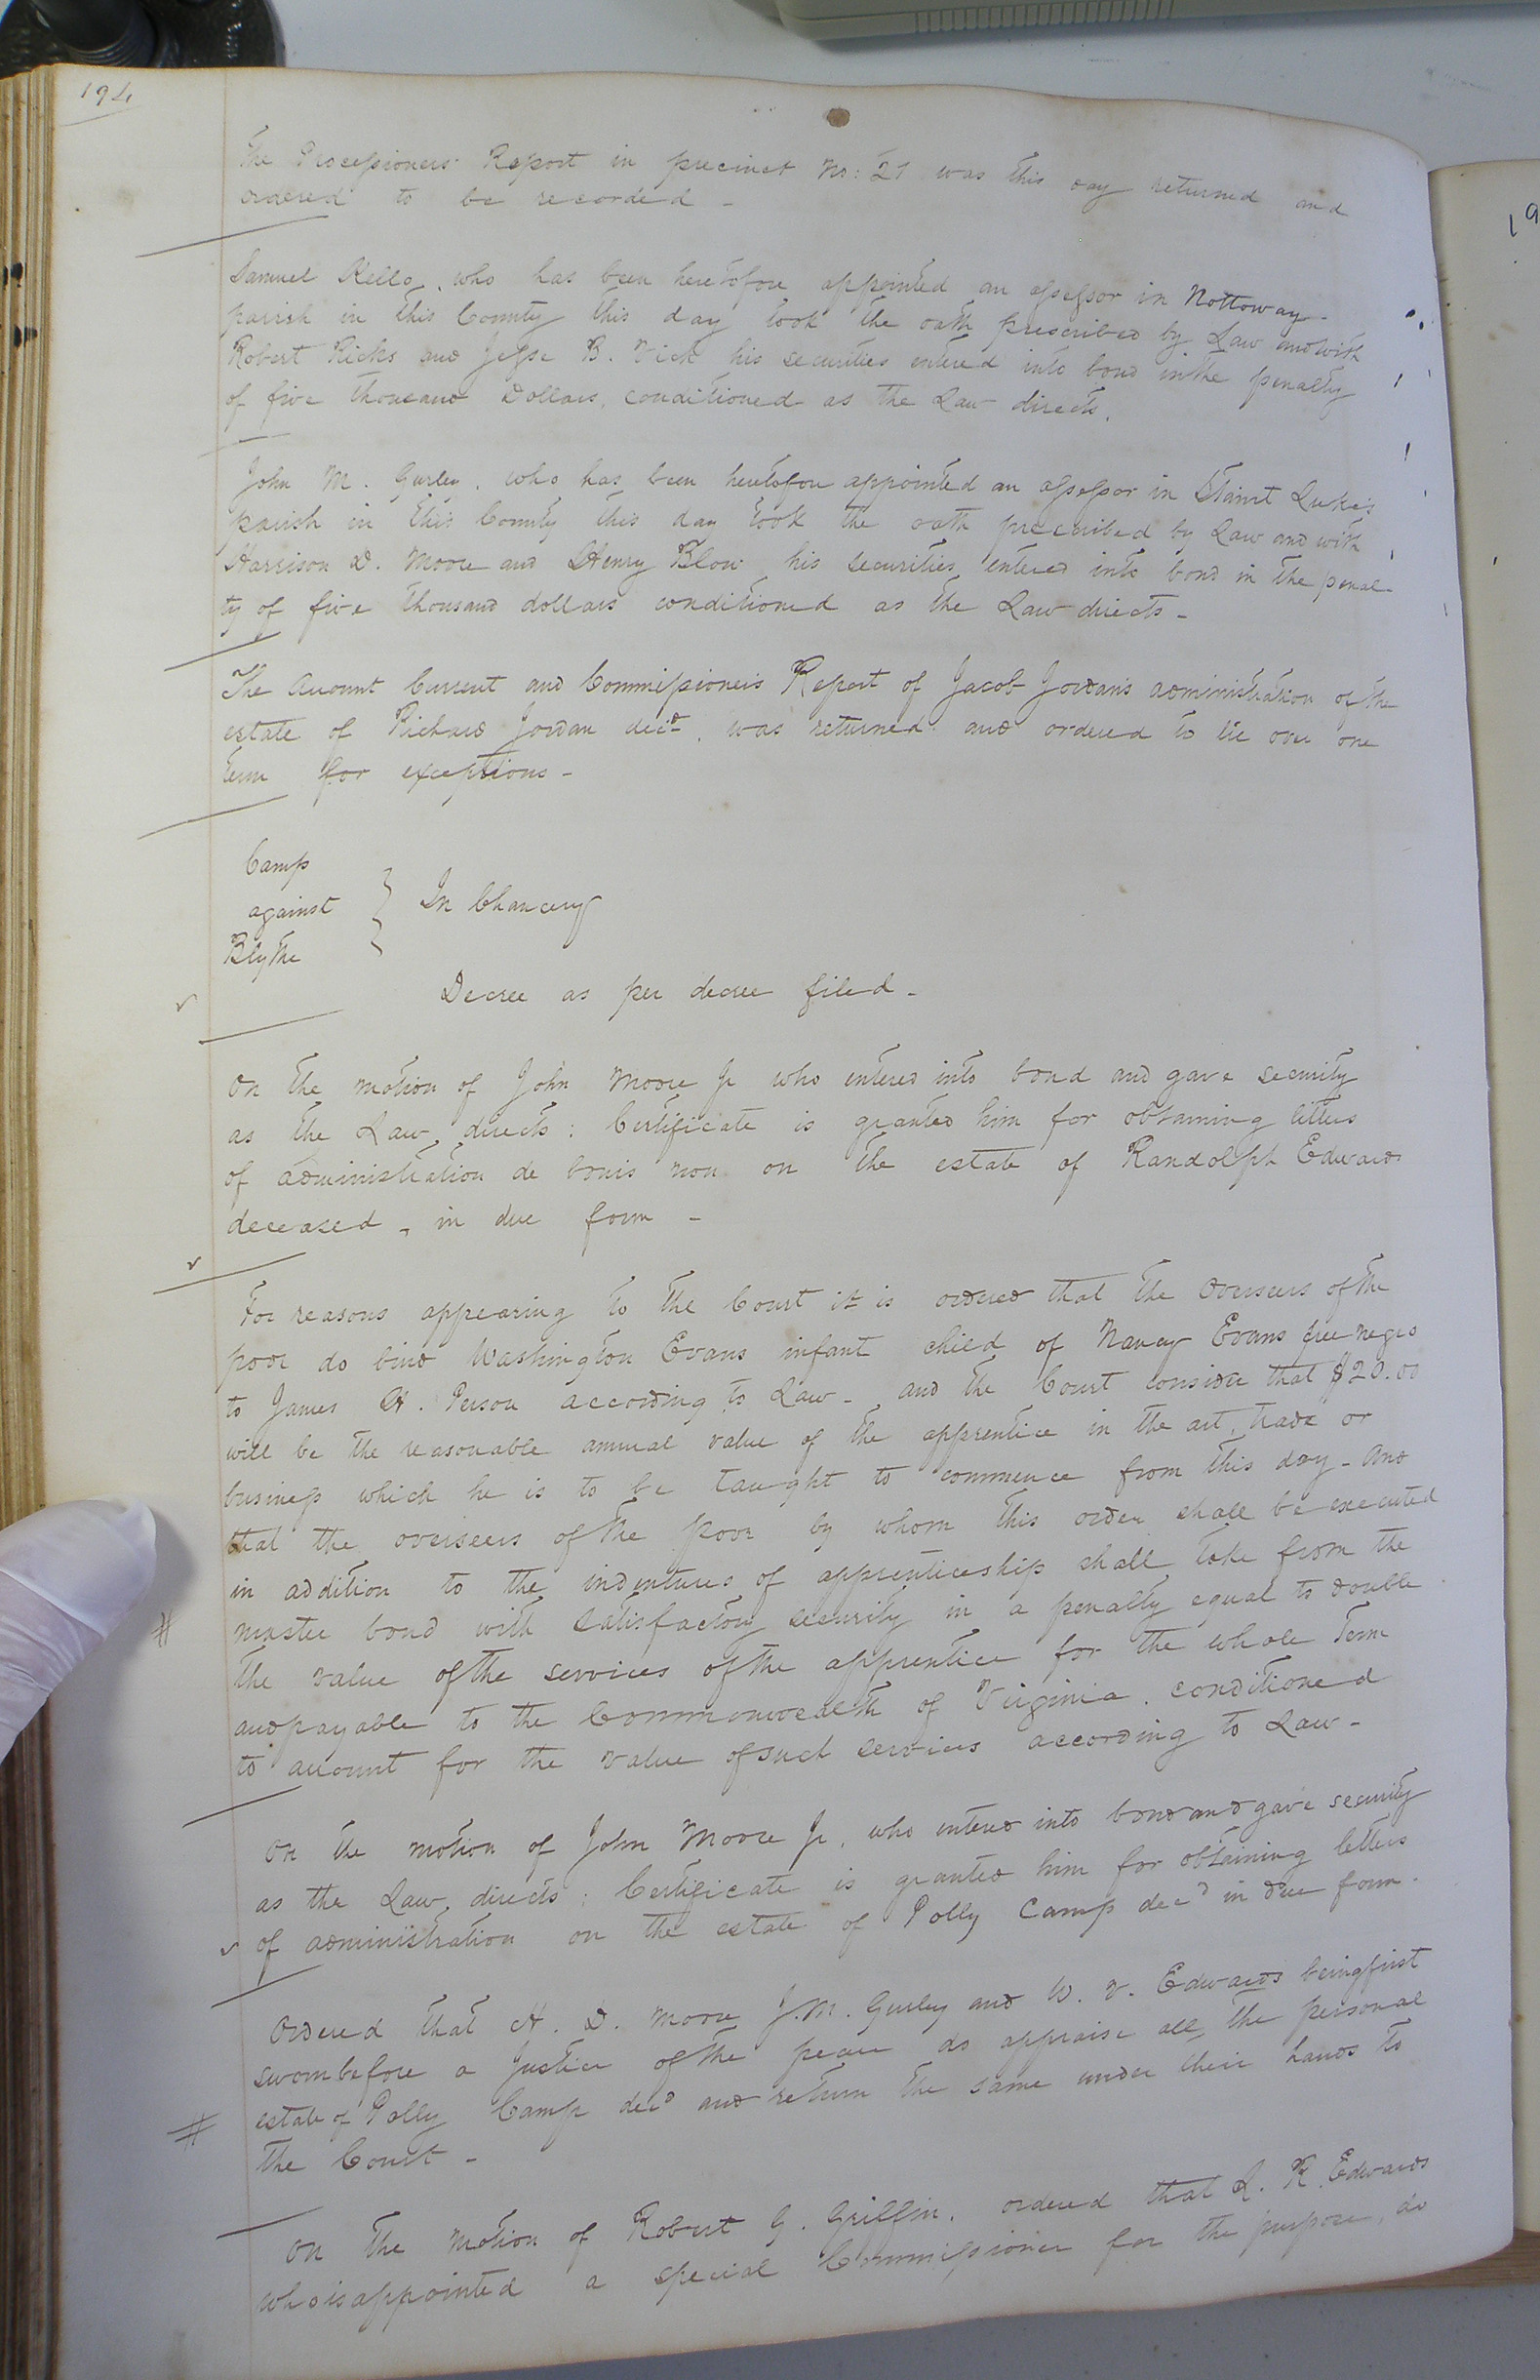 194
The Processioners Report in precinct No: 21 was this day returned and
ordered to be recorded -
Samuel Kello, who has been heretofore appointed an assessor in Nottoway
parish in this County this day took the oath prescribed by Law and with
Robert Ricks and Jesse B. Vick his securities entered into bond in the penalty
of five thousand Dollars, conditioned as the Law directs.
John M. Gurley, who has been heretofore appointed an assessor in Saint Luke's
parish in this County this day took the oath prescribed by Law and with
Harrison D. Moore and Henry Blow his securities entered into bond in the penal-
ty of five thousand dollars conditioned as the Law directs -
The Account Current and Commissioners Report of Jacob Jordan's administration of the
estate of Richard Jordan decd, was returned and ordered to lie over one
term for exceptions -
Camp
against } In Chancery
Blythe
Decree as per decree filed -
On the motion of John Moore Jr who entered into bond and gave security
as the Law directs; Certificate is granted him for obtaining letters
of administration de bonis non on the estate of Randolph Edwards
deceased, in due form -
For reasons appearing to the Court it is ordered that the Overseers of the
poor do bind Washington Evans infant child of Nancy Evans free negro
to James H. Person according to Law - and the Court consider that $20.00
will be the reasonable annual value of the apprentice in the art, trade or
business which he is to be taught to commence from this day - And
that the overseers of the poor by whom this order shall be executed
in addition to the indentures of apprenticeship shall take from the
# master bond with satisfactory security in a penalty equal to double
the value of the services of the apprentice for the whole term
and payable to the Commonwealth of Virginia, conditioned
to account for the value of such services according to Law -
On the motion of John Moore Jr, who entered into bond and gave security
as the Law directs; Certificate is granted him for obtaining letters
of administration on the estate of Polly Camp decd in due form.
Ordered that H. D. Moore J. M. Gurley and W. V. Edwards being first
sworn before a Justice of the peace do appraise all the personal
# estate of Polly Camp decd and return the same under their hands to
the Court -
On the motion of Robert G. Griffin, ordered that L. R. Edwards
who is appointed a special Commissioner for the purpose, do